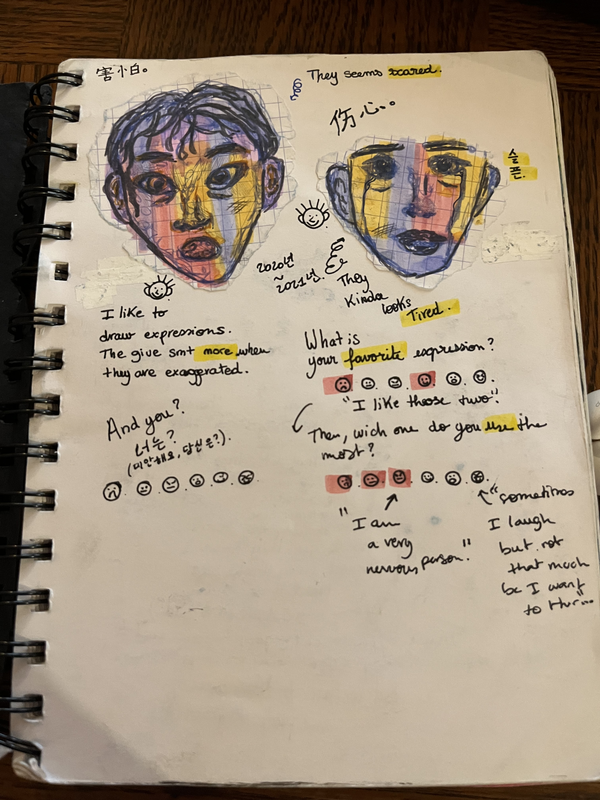 害怕。
They seems scared.
伤心。
슬
픈.
2020년
~2021년.
They
Kinda
looks
Tired.
I like to
draw expressions.
The give smt more when
they are exagerated.
What is
your favorite expression?
"I like those two".
And you?
너는?
(미안해요, 당신은?).
Then, wich one do you use the
most?
"I am
a very
nervous person."
"sometimes
I laugh
but not
that much
bc I want
to